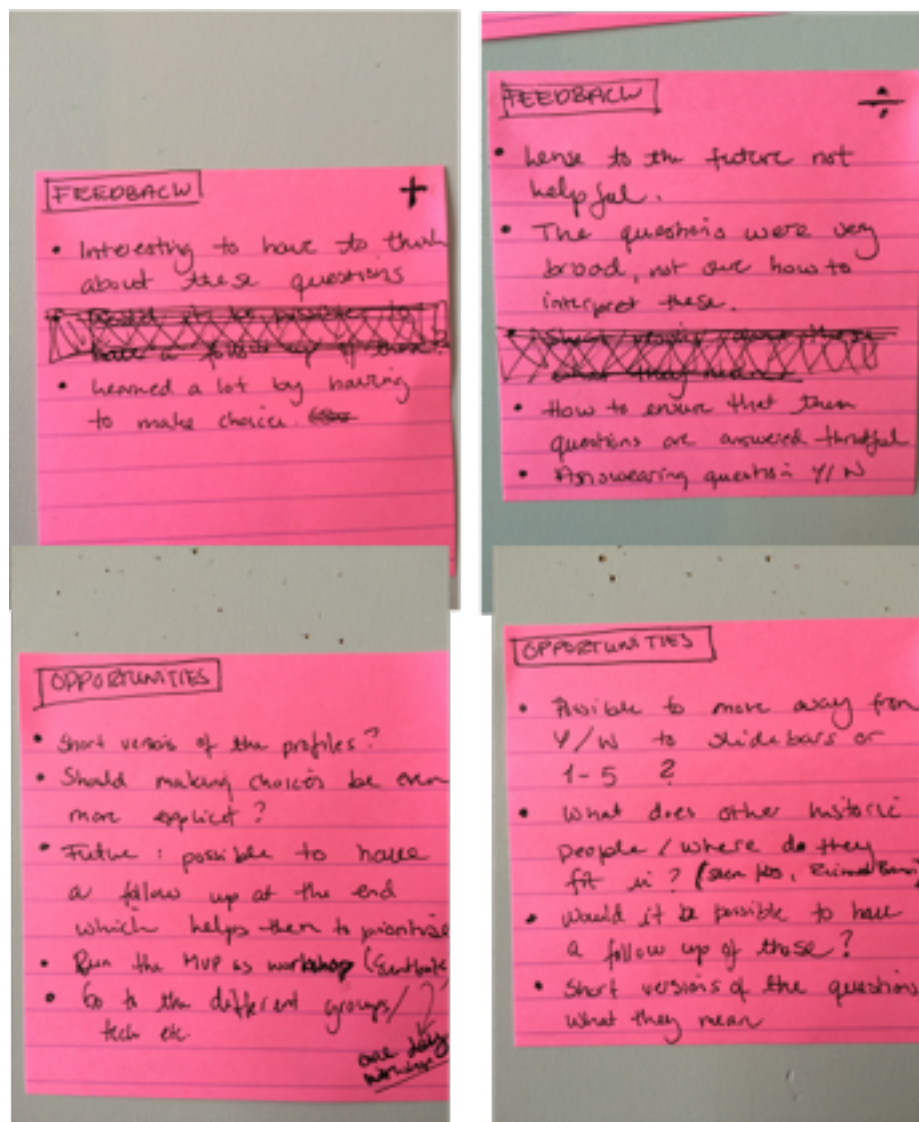 FEEDBACK +
• Interesting to have to think
about these questions
Would it be possible to
have a follow up of those?
• Learned a lot by having
to make choices.
FEEDBACK ÷
• Lense to the future not
helpful.
• The questions were very
broad, not sure how to
interpret these.
• Short versions
what they mean
• How to ensure that them
questions are answered
• Answearing question Y/N
OPPORTUNITIES
• Short versions of the profiles?
• Should making choices be even
more explicit?
• Future: possible to have
a follow up at the end
which helps them to prioritise
• Run the MVP as workshop
• Go to the different groups/
tech etc.
one day
workshop
OPPORTUNITIES
• Possible to move away from
Y/N to slidebars or
1-5 ?
• What does other historic
people / where do they
fit in?
• Would it be possible to have
a follow up of those?
• Short versions of the questions
what they mean